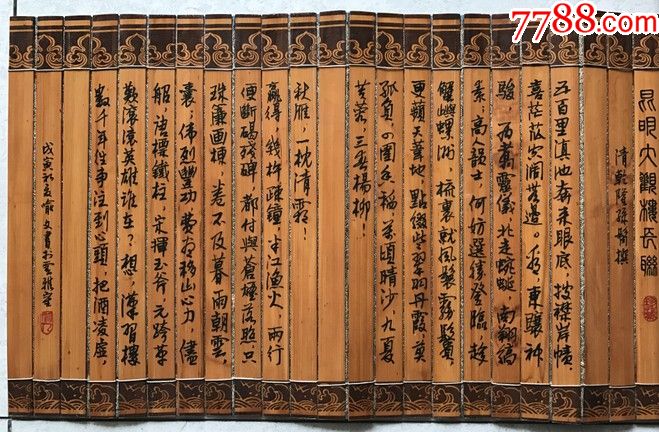 7788.com
昆明大觀樓長聯
清乾隆孫髯撰
五百里滇池奔来眼底，披襟岸幘
喜茫茫空闊無邊。看，東驤神
駿，西翥靈儀，北走蜿蜒，南翔縞
素，高人韻士，何妨選勝登臨，趁
蟹嶼螺洲，梳裹就風鬟霧鬢，
更蘋天葦地，點綴些翠羽丹霞，莫
孤負，四圍香稻，萬頃晴沙，九夏
芙蓉，三春楊柳！
數千年往事注到心頭，把酒凌虛，
歎滾滾英雄誰在？想，漢習樓
船，唐標鐵柱，宋揮玉斧，元跨革
囊，偉烈豐功，費盡移山心力，儘
珠簾画棟，卷不及暮雨朝雲，
便斷碣殘碑，都付與蒼煙落照，只
贏得，幾杵疎鐘，半江渔火，兩行
秋雁，一枕清霜！
戊寅秋